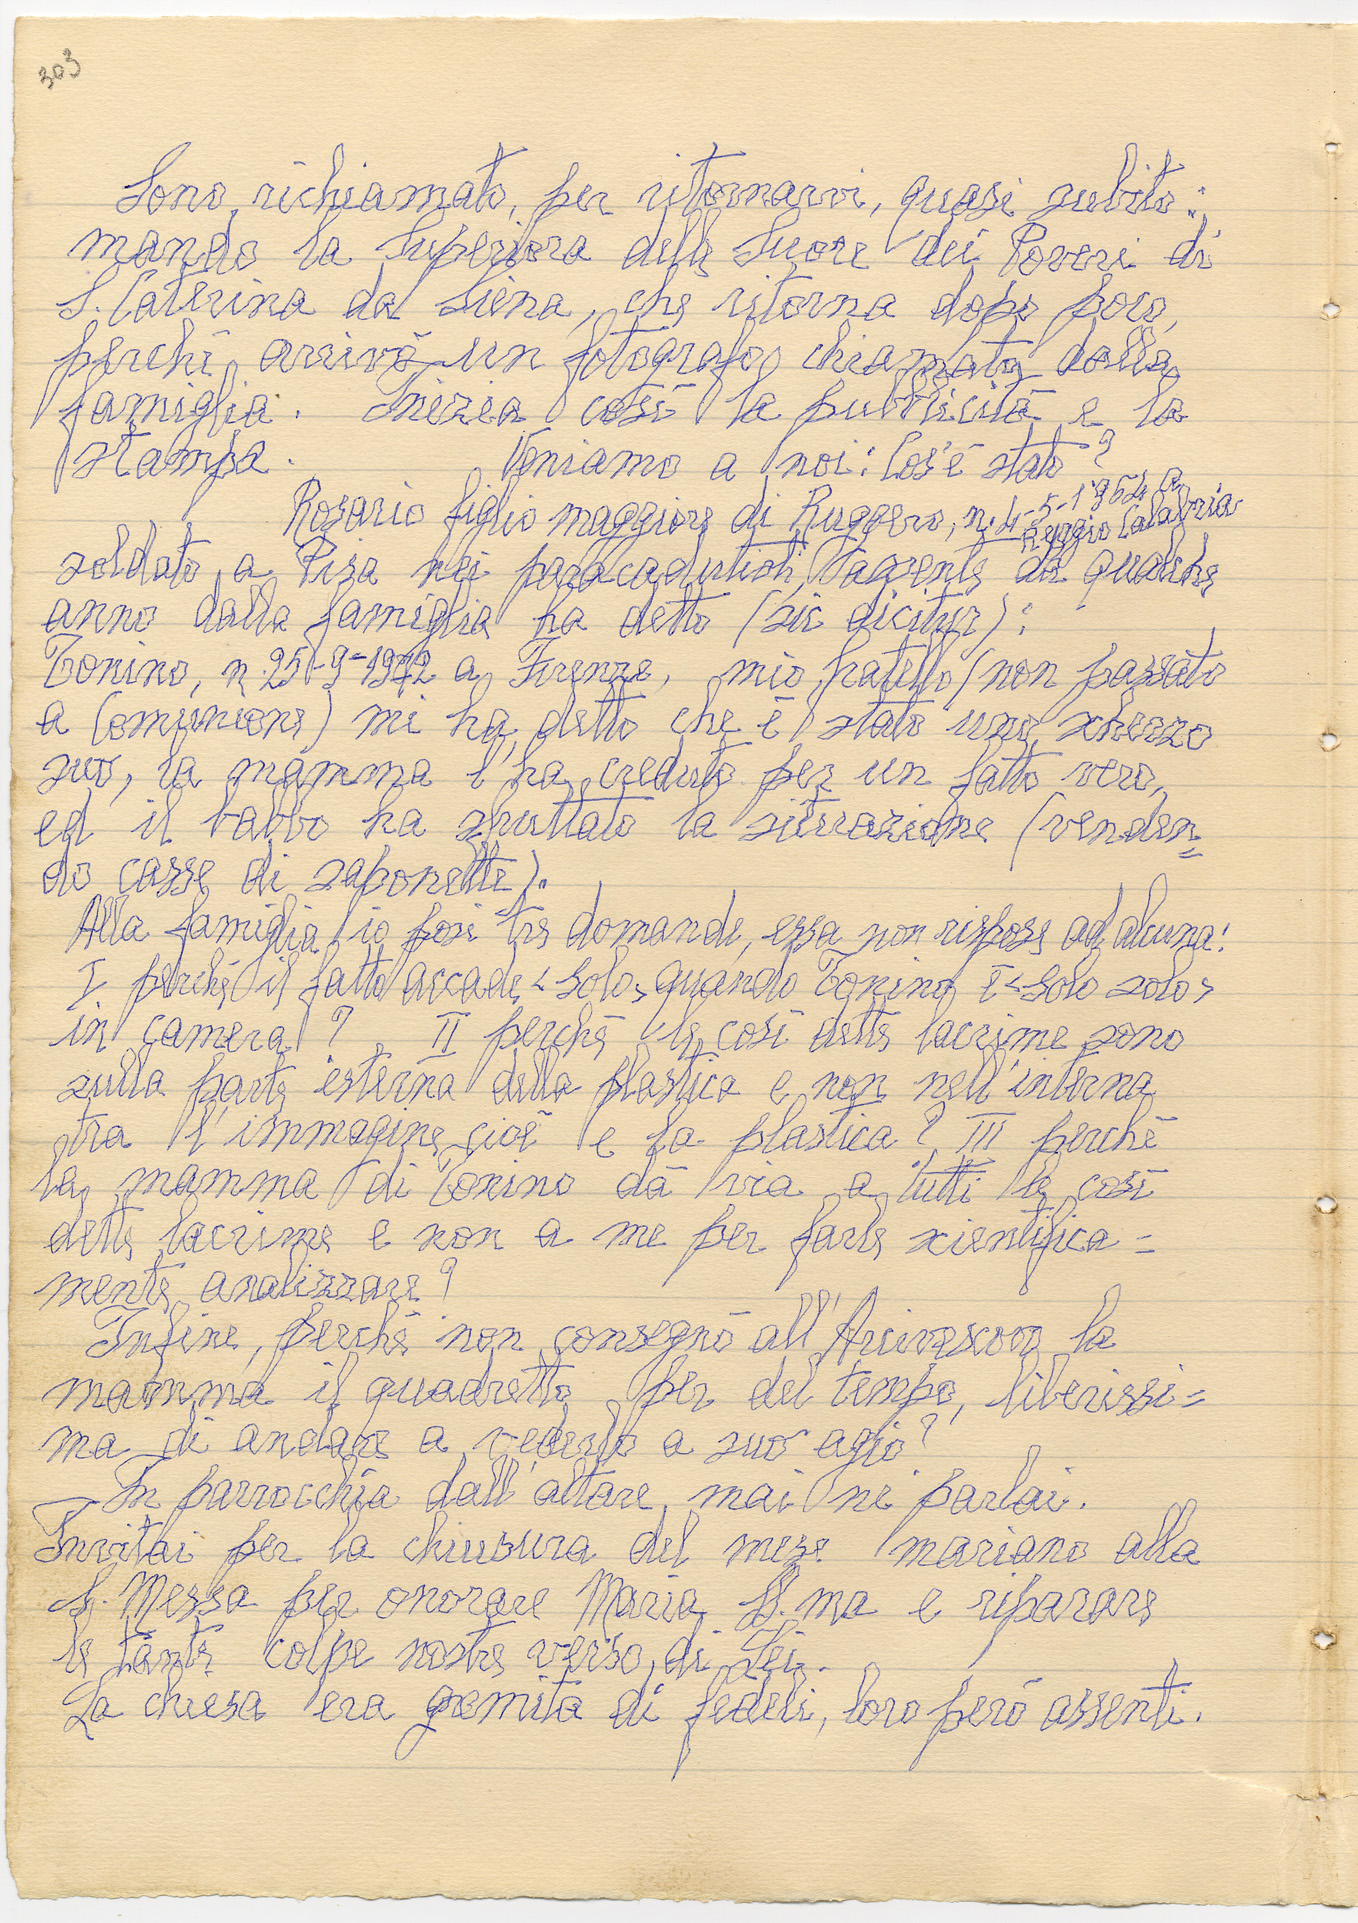 303
Sono richiamato, per ritornarvi, quasi subito:
mando la Superiora delle Suore dei Poveri di
S. Caterina da Siena, che ritorna dopo poco,
perchè arrivò un fotografo chiamato dalla
famiglia. Inizia così la pubblicità e la
stampa. Veniamo a noi: Cos'è stato?
Rosario figlio maggiore di Ruggero, n. 4-5-1964 a
Reggio Calabria
soldato a Pisa nei paracadutisti, assente da qualche
anno dalla famiglia ha detto (sic dicitur):
Tonino, n. 25-9-1972 a Firenze, mio fratello (non passato
a Comunione) mi ha detto che è stato uno scherzo
suo, la mamma l'ha creduto per un fatto vero,
ed il babbo ha sfruttato la situazione (venden=
do casse di saponette).
Alla famiglia io posi tre domande, essa non rispose ad alcuna:
I perchè il fatto accade <solo> quando Tonino è <solo solo>
in camera? II perchè le così dette lacrime sono
sulla parte esterna della plastica e non nell'interna
tra l'immagine cioè e la plastica? III perchè
la mamma di Tonino dà via a tutti le così
dette lacrime e non a me per farle scientifica=
mente analizzare?
Infine, perchè non consegnò all'Arcivescovo la
mamma il quadretto per del tempo, liberissi=
ma di andare a vederlo a suo agio?
In parrocchia dall'altare mai ne parlai.
Invitai per la chiusura del mese mariano alla
S. Messa per onorare Maria SS.ma e riparare
le tante colpe nostre verso di Lei.
La chiesa era gremita di fedeli, loro però assenti.